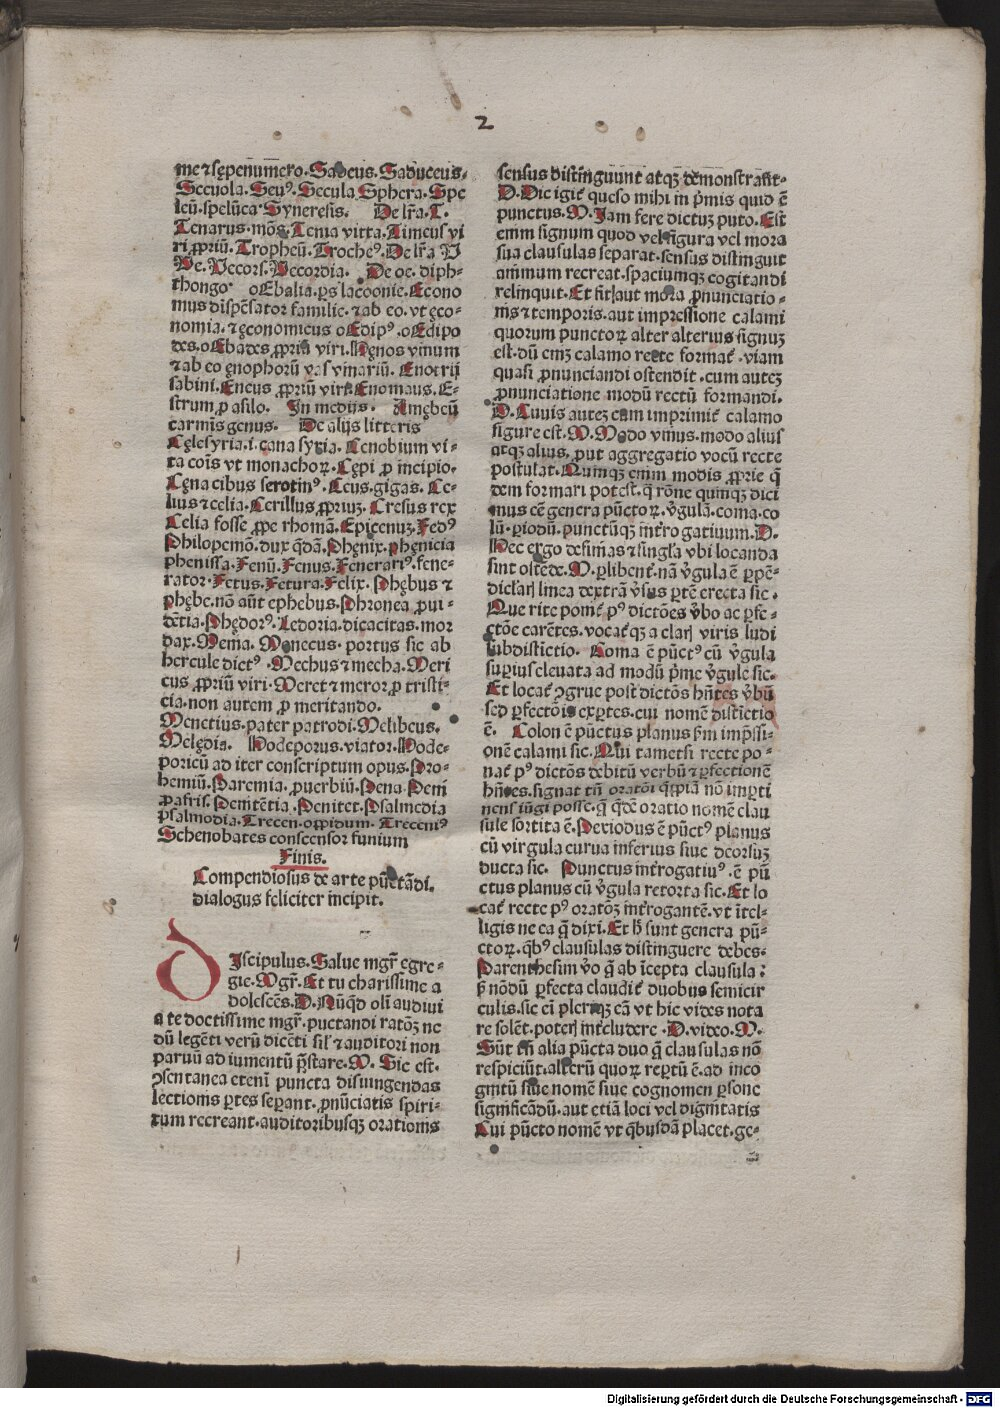 2
me ⁊ sępenumero. Sadeus. Saduceus.
Sceuola. Seuꝰ. Secula Sphera. Spe
leū. spelūca. Syneresis. De lr̄a. T.
Tenarus. mōs. Tenia vitta. Timeus vi
ri ꝓpriū. Tropheū. Trocheꝰ. De lr̄a V
Ve. Vecors. Vecordia. De oe. diph-
thongo. oEbalia. ps lacoonie. Econo
mus dispēsator familie. ⁊ ab eo. vt ęco-
nomia. ⁊ ęconomicus oEdipꝰ. oEdipo
des. oEbades. ꝓpriū viri. Hęnos vinum
⁊ ab eo ęnophorū vas vinariū. Enotrij
sabini. Eneus ꝓpriū viri. Enomaus. E-
strum ꝓ asilo. In medijs. Amębeū
carmīs genus. De alijs litteris
Cęlesyria. i. caua syria. Cenobium vi-
ta coīs vt monachoꝝ. Cępi ꝓ incipio.
Cęna cibus serotinꝰ. Ceus. gigas. Ce-
lius ⁊ celia. Cerillus ꝓpriuꝫ. Cresus rex
Celia fosse ꝓpe rhomā. Epicenuꝫ. Fedꝰ
Philopemō. dux q̄dā. Phęnix. phęnicia
phenissa. Fenū. Fenus. Fenerariꝰ. fene-
rator. Fetus. Fetura. Felix. Phębus ⁊
Phębe. nō aūt ephebus. Phronea ꝓui-
dētia. Phędorꝰ. Ledoria. dicacitas. mor
dax. Mema. Monecus. portus sic ab
hercule dictꝰ. Mechus ⁊ mecha. Meri
cus ꝓpriū viri. Meret ⁊ meror ꝓ tristi-
cia. non autem ꝓ meritando.
Menetius. pater patrodi. Melibeus.
Melędia. Hodeporus. viator. Hode-
poricū ad iter conscriptum opus. Pro-
hemiū. Paremia. ꝓuerbiū. Pena. Peni
ꝓ afris. Penitētia. Penitet. Psalmedia
psalmodia. Trecen. oppidum. Treceniꝰ
Schenobates conscensor funium
Finis.
Compendiosus de arte pūctādi.
dialogus feliciter incipit.
DIscipulus. Salue mgr̄ egre-
gie. Mgr̄. Et tu charissime a
dolescēs. D. Nūqd̄ oli audiui
a te doctissime mgr̄. puctandi ratōꝫ ne
dū legēti verū dicēti sil̄ ⁊ auditori non
paruū ad iumentū p̄stare. M. Sic est.
ꝯsentanea etenī puncta disiungendas
lectionis ꝑtes seꝑant. ꝓnūciatis spiri-
tum recreant. auditoribusqꝫ orationis
sensus distinguunt atqꝫ demonstrant.
D. Dic igit̄ queso mihi in p̄mis quid ē
punctus. M. Iam fere dictuꝫ puto. Est
enim signum quod vel figura vel mora
sua clausulas separat. sensus distinguit
animum recreat. spaciumqꝫ cogitandi
relinquit. Et fit aut mora ꝓnunciatio-
nis ⁊ temporis. aut impressione calami
quorum punctoꝝ alter alterius signuꝫ
est. dū eniꝫ calamo recte format̄. viam
quasi ꝓnunciandi ostendit. cum auteꝫ
ꝓnunciatione modū rectū formandi.
D. Cuius auteꝫ cum imprimit̄ calamo
figure est. M. Modo vnius. modo alius
atqꝫ alius. ꝓut aggregatio vocū recte
postulat. Quinqꝫ enim modis ꝓprie q̄
dem formari potest. q̄ rōne quinqꝫ dici
mus eē genera pūctoꝝ. v̄gulā. coma. co
lū. ꝑiodū. punctūqꝫ int̄rogatiuum. D.
Hec ergo definias ⁊ singl̄a vbi locanda
sint ostēde. M. ꝑlibent̄. nā v̄gula ē ꝑpē-
diclaꝛꝭ linea dextrā v̄sus ꝑtē erecta sic.
Que rite ponit̄ pꝰ dictōes v̄bo ac ꝑfe-
ctōe carētes. vocat̄qꝫ a claꝛꝭ viris ludi
subdistictio. Coma ē pūctꝰ cū v̄gula
suꝑius eleuata ad modū p̄me v̄gule sic.
Et locat̄ ꝯgrue post dictōs hn̄tes v̄bū
sed ꝑfectōis exꝑtes. cui nomē distictio
ē. Colon ē pūctus planus p̄m imp̄ssi-
onē calami sic. Qui tametsi recte po-
nat̄ pꝰ dictōs debitū verbū ⁊ ꝑfectionē
hn̄tes. signat tn̄ oratōi q̄ppiā nō imꝑti
nens iūgi posse. q̄ qdē oratio nomē clau
sule sortita ē. Periodus ē pūctꝰ planus
cū virgula curua inferius siue deorsuꝫ
ducta sic. Punctus int̄rogatiuꝰ. ē pū
ctus planus cū v̄gula retorta sic. Et lo
cat̄ recte pꝰ oratōꝫ int̄rogantē. vt ītel-
ligis ne ea q̄ dixi. Et h̄ sunt genera pū-
ctoꝝ. qb̄ꝰ clausulas distinguere debes.
Parenthesim v̄o q̄ ab īcepta clausula:
p̄ nōdū ꝑfecta claudit̄ duobus semicir
culis. sic eī pleriqꝫ eā vt hic vides nota
re solēt. poterꝭ int̄cludere. D. video. M.
Sūt tn̄ alia pūcta duo q̄ clausulas nō
respiciūt. alterū quoꝝ reꝑtū ē. ad inco
gnitū siue nomē siue cognomen ꝑsone
significādū. aut etiā loci vel dignitatis
Cui pūcto nomē vt qb̄usdā placet. ge-
Digitalisierung gefördert durch die Deutsche Forschungsgemeinschaft - DFG